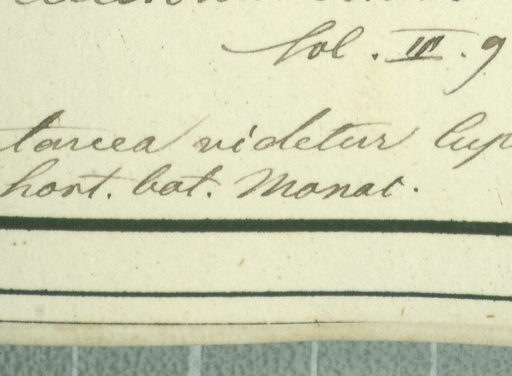 fol. III. 9
tarcea videtur Cup
hort. bot. Monac.